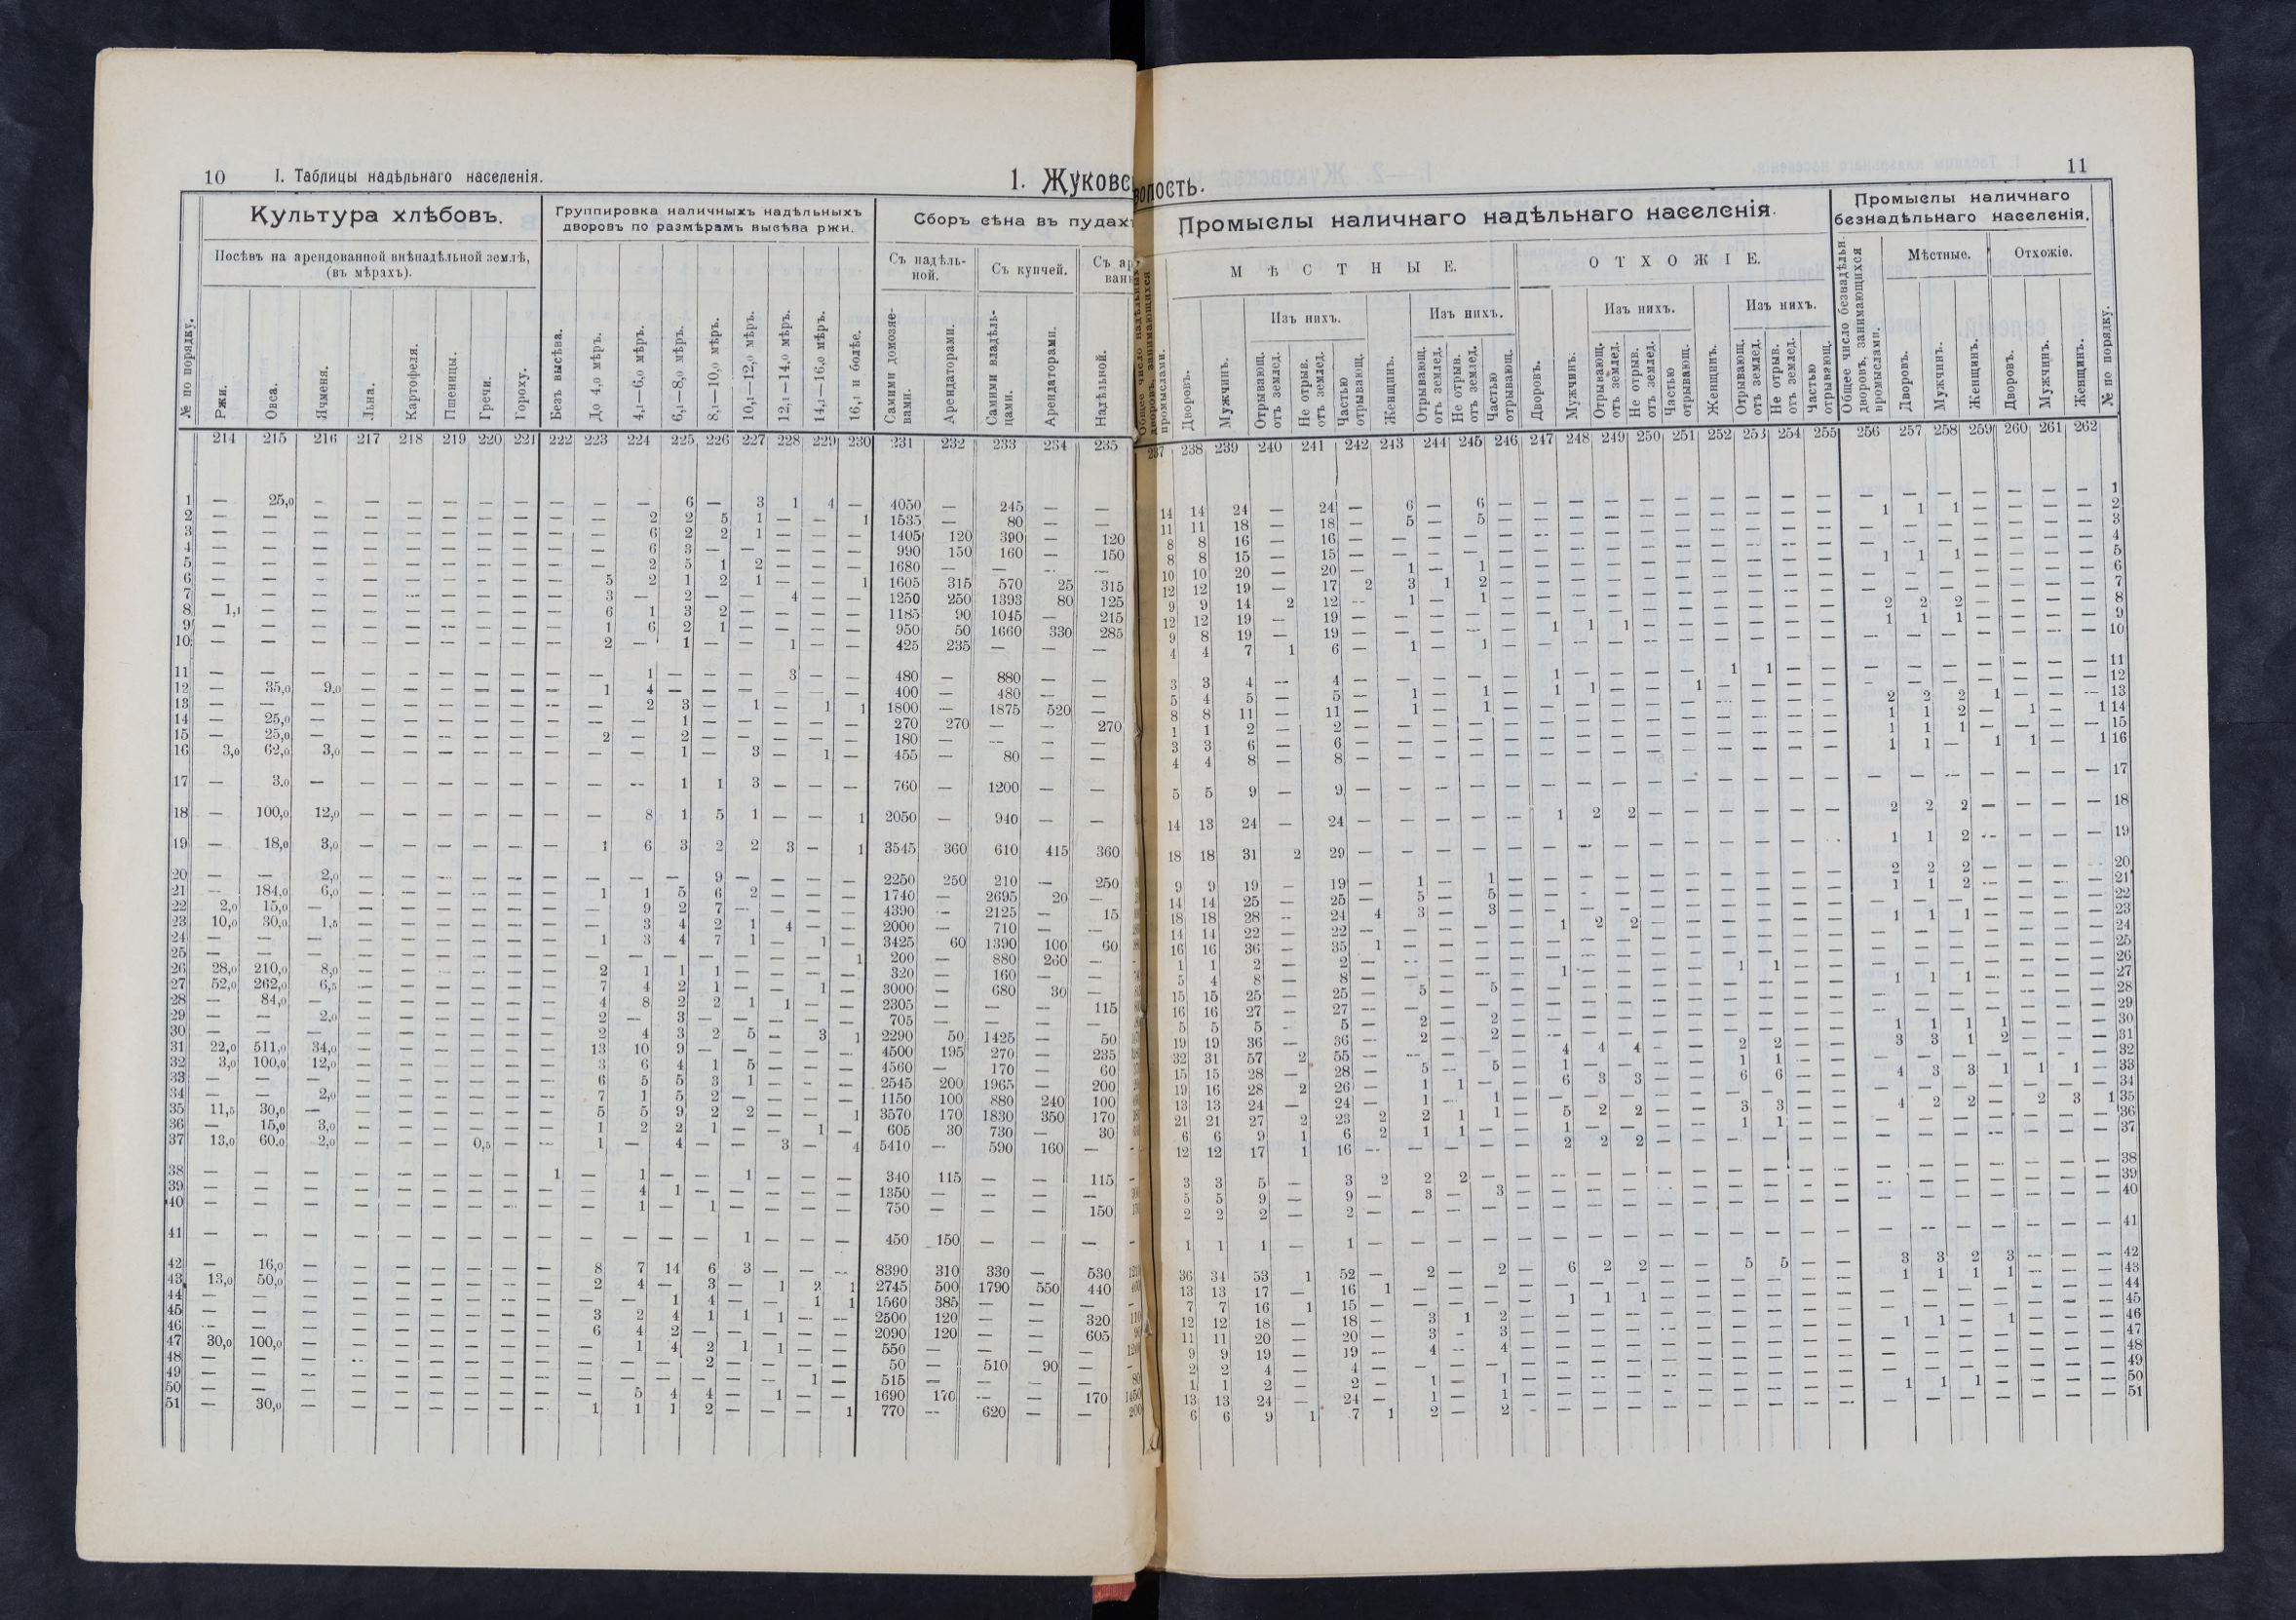 10 I. Таблицы надѣльнаго населенія.
1. Жуковс
Культура хлѣбовъ.
Группировка наличныхъ надѣльныхъ
дворовъ по размѣрамъ высѣва ржи.
Сборъ сѣна въ пудахъ
Посѣвъ на арендованной внѣнадѣльной землѣ,
(въ мѣрахъ).
Съ надѣль-
ной.
Съ купчей.
№ по порядку.
Ржи.
Овса.
Ячменя.
Льна.
Картофеля.
Пшеницы.
Гречи.
Гороху.
Безъ высѣва.
До 4,0 мѣръ.
4,1—6,0 мѣръ.
6,1—8,0 мѣръ.
8,1—10,0 мѣръ.
10,1—12,0 мѣръ.
12,1—14,0 мѣръ.
14,1—16,0 мѣръ.
16,1 и болѣе.
Самими домохяе-
вами.
Арендаторами.
Самими владѣль-
цами.
Арендаторами.
Надѣльной.
214 215 216 217 218 219 220 221 222 223 224 225 226 227 228 229 230 231 232 233 234 235
1 — 25,0 — — — — — — — — — 6 — 3 1 4 — 4050 — 245 — —
2 — — — — — — — — — — 2 2 5 1 — — 1 1535 — 80 — —
3 — — — — — — — — — — 6 2 2 1 — — — 1405 120 390 — 120
4 — — — — — — — — — — 6 3 — — — — — 990 150 160 — 150
5 — — — — — — — — — — 2 5 1 2 — — — 1680 — — — —
6 — — — — — — — — — 5 2 1 2 1 — — 1 1605 315 570 25 315
7 — — — — — — — — — 3 — 2 — — 4 — — 1250 250 1393 80 125
8 1,1 — — — — — — — — 6 1 3 2 — — — — 1185 90 1045 — 215
9 — — — — — — — — — 1 6 2 1 — — — — 950 50 1660 330 285
10 — — — — — — — — — 2 — 1 — — 1 — — 425 235 — — —
11 — — — — — — — — — — 1 — — — 3 — — 480 — 880 — —
12 — 35,0 9,0 — — — — — — 1 4 — — — — — — 400 — 480 — —
13 — — — — — — — — — — 2 3 — 1 — 1 1 1800 — 1875 520 —
14 — 25,0 — — — — — — — — — 1 — — — — — 270 270 — — 270
15 — 25,0 — — — — — — — 2 — 2 — — — — — 180 — — — —
16 3,0 62,0 3,0 — — — — — — — — 1 — 3 — 1 — 455 — 80 — —
17 — 3,0 — — — — — — — — — 1 1 3 — — — 760 — 1200 — —
18 — 100,0 12,0 — — — — — — — 8 1 5 1 — — 1 2050 — 940 — —
19 — 18,0 3,0 — — — — — — 1 6 3 2 2 3 — 1 3545 360 610 415 360
20 — — 2,0 — — — — — — — — — 9 — — — — 2250 250 210 — 250
21 — 184,0 6,0 — — — — — — 1 1 5 6 2 — — — 1740 — 2695 20 —
22 2,0 15,0 — — — — — — — — 9 2 7 — — — — 4390 — 2125 — 15
23 10,0 30,0 1,5 — — — — — — — 3 4 2 1 4 — — 2000 — 710 — —
24 — — — — — — — — — 1 3 4 7 1 — 1 — 3425 60 1390 100 60
25 — — — — — — — — — — — — — — — — 1 200 — 880 260 —
26 28,0 210,0 8,0 — — — — — — 2 1 1 1 — — — — 320 — 160 — —
27 52,0 262,0 6,5 — — — — — — 7 4 2 1 — — 1 — 3000 — 680 30 —
28 — 84,0 — — — — — — — 4 8 2 2 1 1 — — 2305 — — — 115
29 — — 2,0 — — — — — — 2 — 3 — — — — — 705 — — — —
30 — — — — — — — — — 2 4 3 2 5 — 3 1 2290 50 1425 — 50
31 22,0 511,0 34,0 — — — — — — 13 10 9 — — — — — 4500 195 270 — 235
32 3,0 100,0 12,0 — — — — — — 3 6 4 1 5 — — — 4560 — 170 — 60
33 — — — — — — — — — 6 5 5 3 1 — — — 2545 200 1965 — 200
34 — — 2,0 — — — — — — 7 1 5 2 — — — — 1150 100 880 240 100
35 11,5 30,0 — — — — — — — 5 5 9 2 2 — — 1 3570 170 1830 350 170
36 — 15,0 3,0 — — — — — — 1 2 2 1 — — 1 — 605 30 730 — 30
37 13,0 60,0 2,0 — — — 0,5 — — 1 — 4 — — 3 — 4 5410 — 590 160 —
38 — — — — — — — — 1 — 1 — — 1 — — — 340 115 — — 115
39 — — — — — — — — — — 4 1 — — — — — 1350 — — — —
40 — — — — — — — — — — 1 — 1 — — — — 750 — — — 150
41 — — — — — — — — — — — — — 1 — — — 450 150 — — —
42 — 16,0 — — — — — — — 8 7 14 6 3 — — — 8390 310 330 — 530
43 13,0 50,0 — — — — — — — 2 4 — 3 — 1 2 1 2745 500 1790 550 440
44 — — — — — — — — — — — 1 4 — — 1 1 1560 385 — — —
45 — — — — — — — — — 3 2 4 1 1 1 — — 2500 120 — — 320
46 — — — — — — — — — 6 4 2 — — — — — 2090 120 — — 605
47 30,0 100,0 — — — — — — — — 1 4 2 1 1 — — 550 — — — —
48 — — — — — — — — — — — — 2 — — — — 50 — 510 90 —
49 — — — — — — — — — — — — — — — 1 — 515 — — — —
50 — — — — — — — — — — 5 4 4 — 1 — — 1690 170 — — 170
51 — 30,0 — — — — — — — 1 1 1 2 — — — 1 770 — 620 — —
волость.
11
Промыслы наличнаго надѣльнаго населенія.
Промыслы наличнаго
безнадѣльнаго населенія.
МѢСТНЫЕ.
ОТХОЖІЕ.
Мѣстные.
Отхожіе.
Изъ нихъ.
Изъ нихъ.
Изъ нихъ.
Изъ нихъ.
Общее число надѣльныхъ
дворовъ, занимающихся
промыслами.
Дворовъ.
Мужчинъ.
Отрывающ.
отъ землед.
Не отрыв.
отъ землед.
Частью
отрывающ.
Женщинъ.
Отрывающ.
отъ землед.
Не отрыв.
отъ землед.
Частью
отрывающ.
Дворовъ.
Мужчинъ.
Отрывающ.
отъ землед.
Не отрыв.
отъ землед.
Частью
отрывающ.
Женщинъ.
Отрывающ.
отъ землед.
Не отрыв.
отъ землед.
Частью
отрывающ.
Общее число безнадѣльн.
дворовъ, занимающихся
промыслами.
Дворовъ.
Мужчинъ.
Женщинъ.
Дворовъ.
Мужчинъ.
Женщинъ.
№ по порядку.
237 238 239 240 241 242 243 244 245 246 247 248 249 250 251 252 253 254 255 256 257 258 259 260 261 262
14 14 24 — 24 — 6 — 6 — — — — — — — — — — — — — — — — — 1
11 11 18 — 18 — 5 — 5 — — — — — — — — — — 1 1 1 — — — — 2
8 8 16 — 16 — — — — — — — — — — — — — — — — — — — — — 3
8 8 15 — 15 — — — — — — — — — — — — — — — — — — — — — 4
10 10 20 — 20 — 1 — 1 — — — — — — — — — — 1 1 1 — — — — 5
12 12 19 — 17 2 3 1 2 — — — — — — — — — — — — — — — — — 6
9 9 14 2 12 — 1 — 1 — — — — — — — — — — — — — — — — — 7
12 12 19 — 19 — — — — — — — — — — — — — — 2 2 2 — — — — 8
9 8 19 — 19 — — — — — 1 1 1 — — — — — — 1 1 1 — — — — 9
4 4 7 1 6 — 1 — 1 — — — — — — — — — — — — — — — — — 10
3 3 4 — 4 — — — — — 1 — — — — 1 1 — — — — — — — — — 11
5 4 5 — 5 — 1 — 1 — 1 1 — — 1 — — — — — — — — — — — 12
8 8 11 — 11 — 1 — 1 — — — — — — — — — — 2 2 2 1 — — — 13
1 1 2 — 2 — — — — — — — — — — — — — — 1 1 2 — 1 — 1 14
3 3 6 — 6 — — — — — — — — — — — — — — 1 1 1 — — — — 15
4 4 8 — 8 — — — — — — — — — — — — — — 1 1 — 1 1 — 1 16
5 5 9 — 9 — — — — — — — — — — — — — — — — — — — — — 17
14 13 24 — 24 — — — — — 1 2 2 — — — — — — 2 2 2 — — — — 18
18 18 31 2 29 — — — — — — — — — — — — — — 1 1 2 — — — — 19
9 9 19 — 19 — 1 — 1 — — — — — — — — — — 2 2 2 — — — — 20
14 14 25 — 25 — 5 — 5 — — — — — — — — — — 1 1 2 — — — — 21
18 18 28 — 24 4 3 — 3 — — — — — — — — — — — — — — — — — 22
14 14 22 — 22 — — — — — 1 2 2 — — — — — — 1 1 1 — — — — 23
16 16 36 — 35 1 — — — — — — — — — — — — — — — — — — — — 24
1 1 2 — 2 — — — — — — — — — — — — — — — — — — — — — 25
5 4 8 — 8 — — — — — 1 — — — — 1 1 — — — — — — — — — 26
15 15 25 — 25 — 5 — 5 — — — — — — — — — — 1 1 1 — — — — 27
16 16 27 — 27 — — — — — — — — — — — — — — — — — — — — — 28
5 5 5 — 5 — 2 — 2 — — — — — — — — — — — — — — — — — 29
19 19 36 — 36 — 2 — 2 — — — — — — — — — — 1 1 1 1 — — — 30
32 31 57 2 55 — — — — — 4 4 4 — — 2 2 — — 3 3 1 2 — — — 31
15 15 28 — 28 — 5 — 5 — 1 — — — — 1 1 — — — — — — — — — 32
19 16 28 2 26 — 1 1 — — 6 3 3 — — 6 6 — — 4 3 3 1 1 1 — 33
13 13 24 — 24 — 1 — 1 — — — — — — — — — — — — — — — — — 34
21 21 27 2 23 2 2 1 1 — 5 2 2 — — 3 3 — — 4 2 2 — 2 3 1 35
6 6 9 1 6 2 1 1 — — 1 — — — — 1 1 — — — — — — — — — 36
12 12 17 1 16 — — — — — 2 2 2 — — — — — — — — — — — — — 37
3 3 5 — 3 2 2 2 — — — — — — — — — — — — — — — — — — 38
5 5 9 — 9 — 3 — 3 — — — — — — — — — — — — — — — — — 39
2 2 2 — 2 — — — — — — — — — — — — — — — — — — — — — 40
1 1 1 — 1 — — — — — — — — — — — — — — — — — — — — — 41
36 34 53 1 52 — 2 — 2 — 6 2 2 — — 5 5 — — 3 3 2 3 — — — 42
13 13 17 — 16 1 — — — — — — — — — — — — — 1 1 1 1 — — — 43
7 7 16 1 15 — — — — — 1 1 1 — — — — — — — — — — — — — 44
12 12 18 — 18 — 3 1 2 — — — — — — — — — — — — — — — — — 45
11 11 20 — 20 — 3 — 3 — — — — — — — — — — 1 1 — 1 — — — 46
9 9 19 — 19 — 4 — 4 — — — — — — — — — — — — — — — — — 47
2 2 4 — 4 — — — — — — — — — — — — — — — — — — — — — 48
1 1 2 — 2 — 1 — 1 — — — — — — — — — — — — — — — — — 49
13 13 24 — 24 — 1 — 1 — — — — — — — — — — 1 1 1 — — — — 50
6 6 9 1 7 1 2 — 2 — — — — — — — — — — — — — — — — — 51